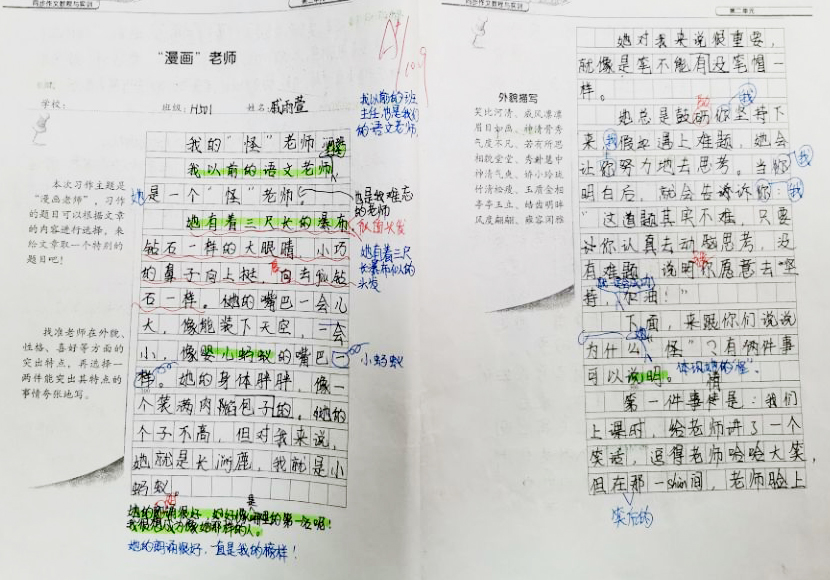 同步作文教程与实训
"漫画"老师
学校：
班级：
姓名：戚雨萱
我以前的班
主任也是我们
的语文老师
本次习作主题是
"漫画老师"，习作
的题目可以根据文章
的内容进行选择。来
给文章取一个特别的
题目吧！
找准老师在外貌、
性格、喜好等方面的
突出特点，再选择一
两件能突出其特点的
事情夸张地写。
我的"怪"老师
我以前的语文老师
她是一个"怪"老师。
也是我难忘
的老师
她有着三尺长的瀑布，
似的头发
钻石一样的大眼睛，小巧
的鼻子向上挺，向去似钻
石一样。她的嘴巴一会儿
大，像能装下天空，一会
小，像婴小蚂蚁的嘴巴一
样。她的身体胖胖，像一
个装满肉馅包子的。她的
个子不高，但对我来说，
她就是长颈鹿，我就是小
蚂蚁。
她有着三尺
长瀑布似的
头发
小蚂蚁
她的朗诵很好，一直是我的榜样！
第二单元
外貌描写
笑比河清、威风凛凛
眉目如画、神清骨秀
气度不凡、若有所思
相貌堂堂、秀龄慧中
神清气爽、娇小玲珑
竹清松瘦、玉质金相
亭亭玉立、皓齿明眸
风度翩翩、雍容闲雅
她对我来说很重要，
就像是笔不能有没笔帽一
样。
她总是鼓励你坚持下
来，我假如遇上难题，她会
让你努力地去思考。当你
明白后，就会告诉你：
"这道题其实不难，只要
让你认真去动脑思考，没
有难题，说明你愿意去"坚
持，加油！"
下面，来跟你们说说
为什么她"怪"？有俩件事
可以说明。
体现她的"怪"、
第一件事情是：我们
上课时，给老师讲了一个
笑话，逗得老师哈哈大笑，
但在那一shùn间，老师脸上
笑后的